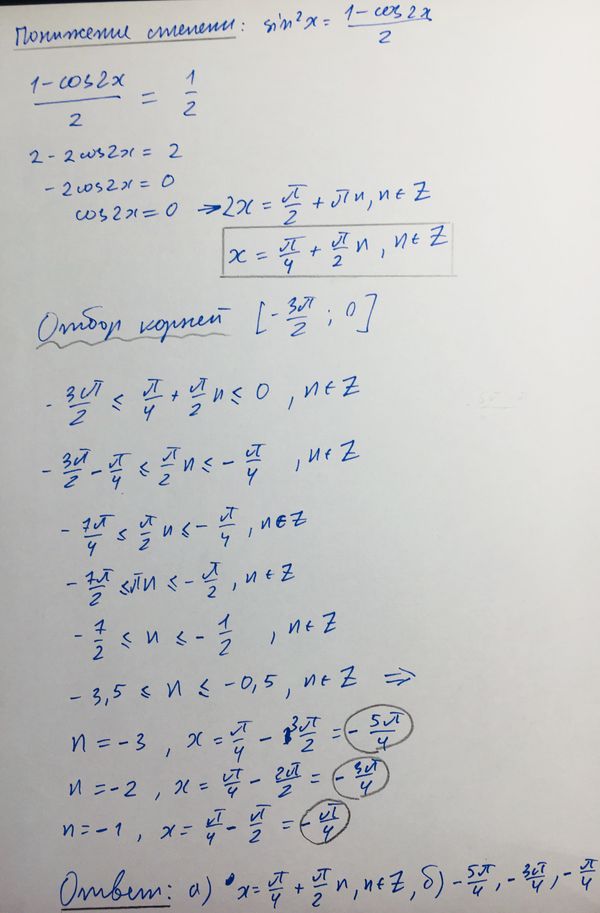 Понижение степени: sin²x = (1-cos2x)/2
(1-cos2x)/2 = 1/2
2 - 2cos2x = 2
-2cos2x = 0
cos2x = 0 → 2x = π/2 + πn, n ∈ Z
x = π/4 + π/2 n, n ∈ Z
Отбор корней [-3π/2 ; 0]
-3π/2 ≤ π/4 + π/2 n ≤ 0, n ∈ Z
-3π/2 - π/4 ≤ π/2 n ≤ -π/4, n ∈ Z
-7π/4 ≤ π/2 n ≤ -π/4, n ∈ Z
-7π/2 ≤ πn ≤ -π/2, n ∈ Z
-7/2 ≤ n ≤ -1/2, n ∈ Z
-3,5 ≤ n ≤ -0,5, n ∈ Z ⇒
n = -3, x = π/4 - 3π/2 = -5π/4
n = -2, x = π/4 - 2π/2 = -3π/4
n = -1, x = π/4 - π/2 = -π/4
Ответ: а) x = π/4 + π/2 n, n ∈ Z, б) -5π/4, -3π/4, -π/4